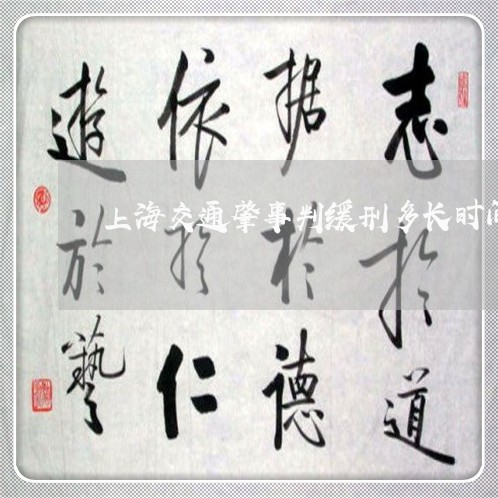 志於道
据於德
依於仁
遊於藝
上海交通肇事判缓刑多长时